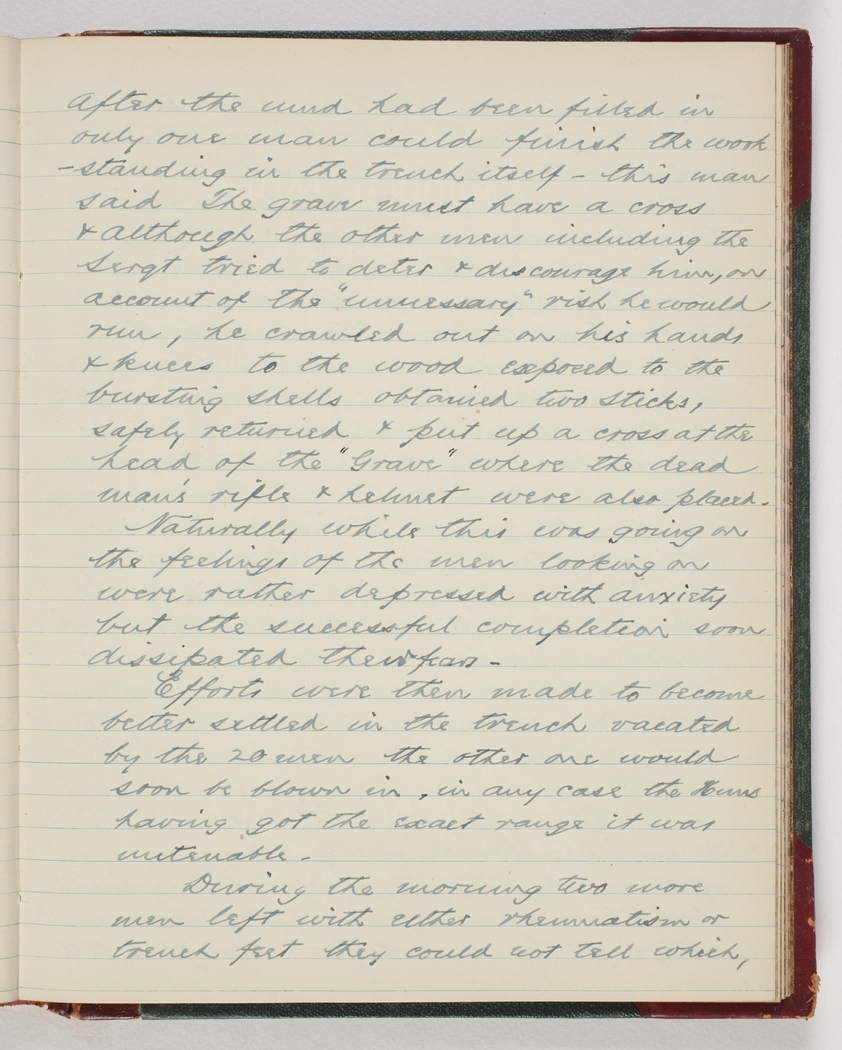 After the mud had been filled in
only one man could finish the work
-standing in the trench itself - this man
said The grave must have a cross
& although the other men including the
Sergt tried to deter & discourage him, on
account of the "unnessary" risk he would
run, he crawled out on his hands
& knees to the wood exposed to the
bursting shells obtained two sticks,
safely returned & put up a cross at the
head of the "Grave" where the dead
man's rifle & helmet were also placed.
Naturally while this was going on
the feelings of the men looking on
were rather depressed with anxiety
but the successful completion soon
dissipated their fears -
Efforts were then made to become
better settled in the trench vacated
by the 20 men the other one would
soon be blown in, in any case the Huns
having got the exact range it was
untenable.
During the morning two more
men left with either rheumatism or
trench feet they could not tell which,